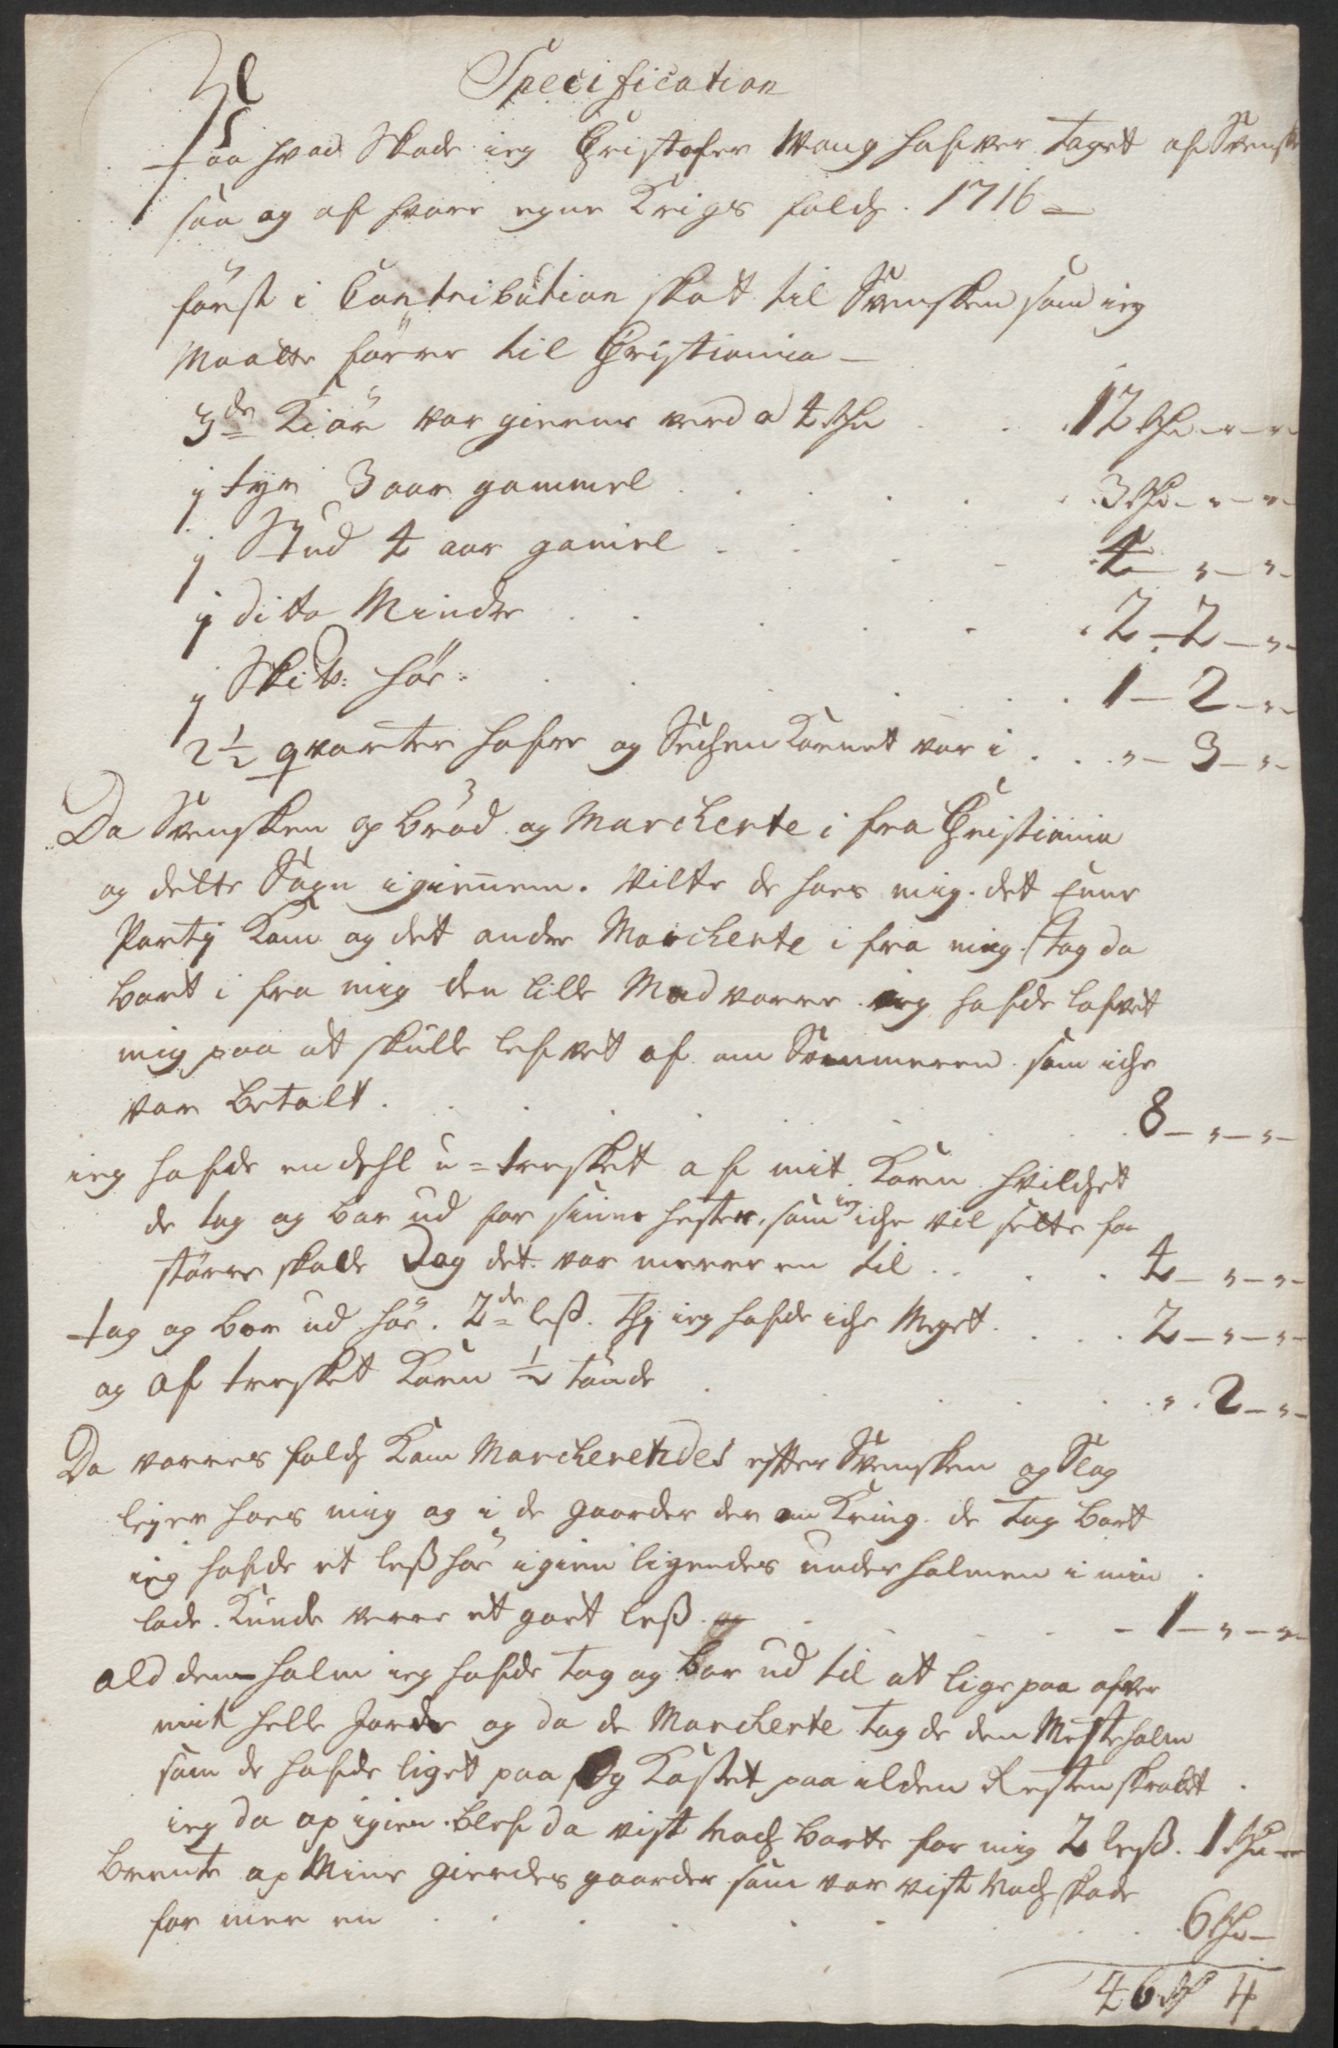 Specification
Paa hvad Skade ieg Christofer Wang hafver taget af Svensk
saa og af hvore egne Krigs folch. 1716 –
först i Contribution skat til Svensken som ieg
Maatte förre til Christiania –
3de Kiör var gierne verd a 4 Rdr . . . 12 Rdr – „ – „
j tyr 3 aar gammel . . . . . 3 Rdr – „ – „
j Stud 4 aar gamel . . . . 4 – „ – „
j dito Mindre . . . . . 2 – 2 – „
j Skib: hör: . . . . . 1 – 2 – „
2½ qvarter hafre og Sechen Kornet var i . . . „ – 3 – „
Da Svensken op bröd og Marcherte i fra Christiania
og dette Sogn igiennem. Vilte de hoes mig. det eene
Party Kom og det andre Marcherte i fra mig. tog da
bort i fra mig den lille Mad varre ieg hafde lafvet
mig paa at skulle lefvet af om Sommeren som iche
var betalt . . . . . 8 – „ – „
ieg hafde en dehl u=tresket af mit Korn hvilchet
de tog og bar ud for sinne hester, som ieg iche vil sette for
större skade Dog det var merre en til . . . . 4 – „ – „
tog og bar ud hör. 2de less. Thj ieg hafde iche Meget . . . . 2 – „ – „
og af tresket Korn ½ tönde . . . . „ . 2 – „
Da vorres folch Kom Marcherendes efter Svensken og Slog
lejer hoes mig og i de gaarder der om Kring. de tog bort
ieg hafde et less hör igien ligendes under halmen i min
lade. Kunde verre et gort less. . . . – 1 – „ – „
ald den halm ieg hafde tog og bar ud til at lige paa ofver
mit helle Jorde og da de Marcherte tog de den Meste halm
som de hafde liget paa og Kastet paa ilden Resten skrabet
ieg da op igien. blef da vist vach borte for mig 2 less. 1 Rdr
brente op Mine gierdes gaarder som var vist vach skade
for mer en . . . . . . 6 Rdr –
46 Rdr 4